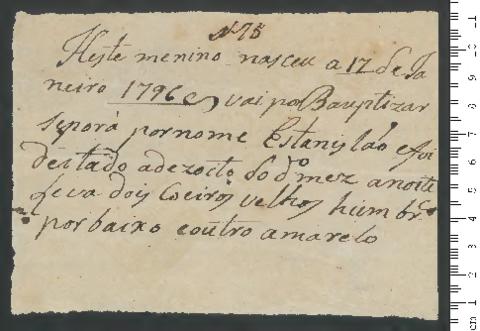 N 75
Heste menino nasceu a 17 de Ja
neiro 1796 e vai por Bauptizar
seporá por nome Estanisláo e foi
deitado a dezoito do dº mez a noite
leva dois Coeiros velhos hum brº
por baixo e outro amarelo